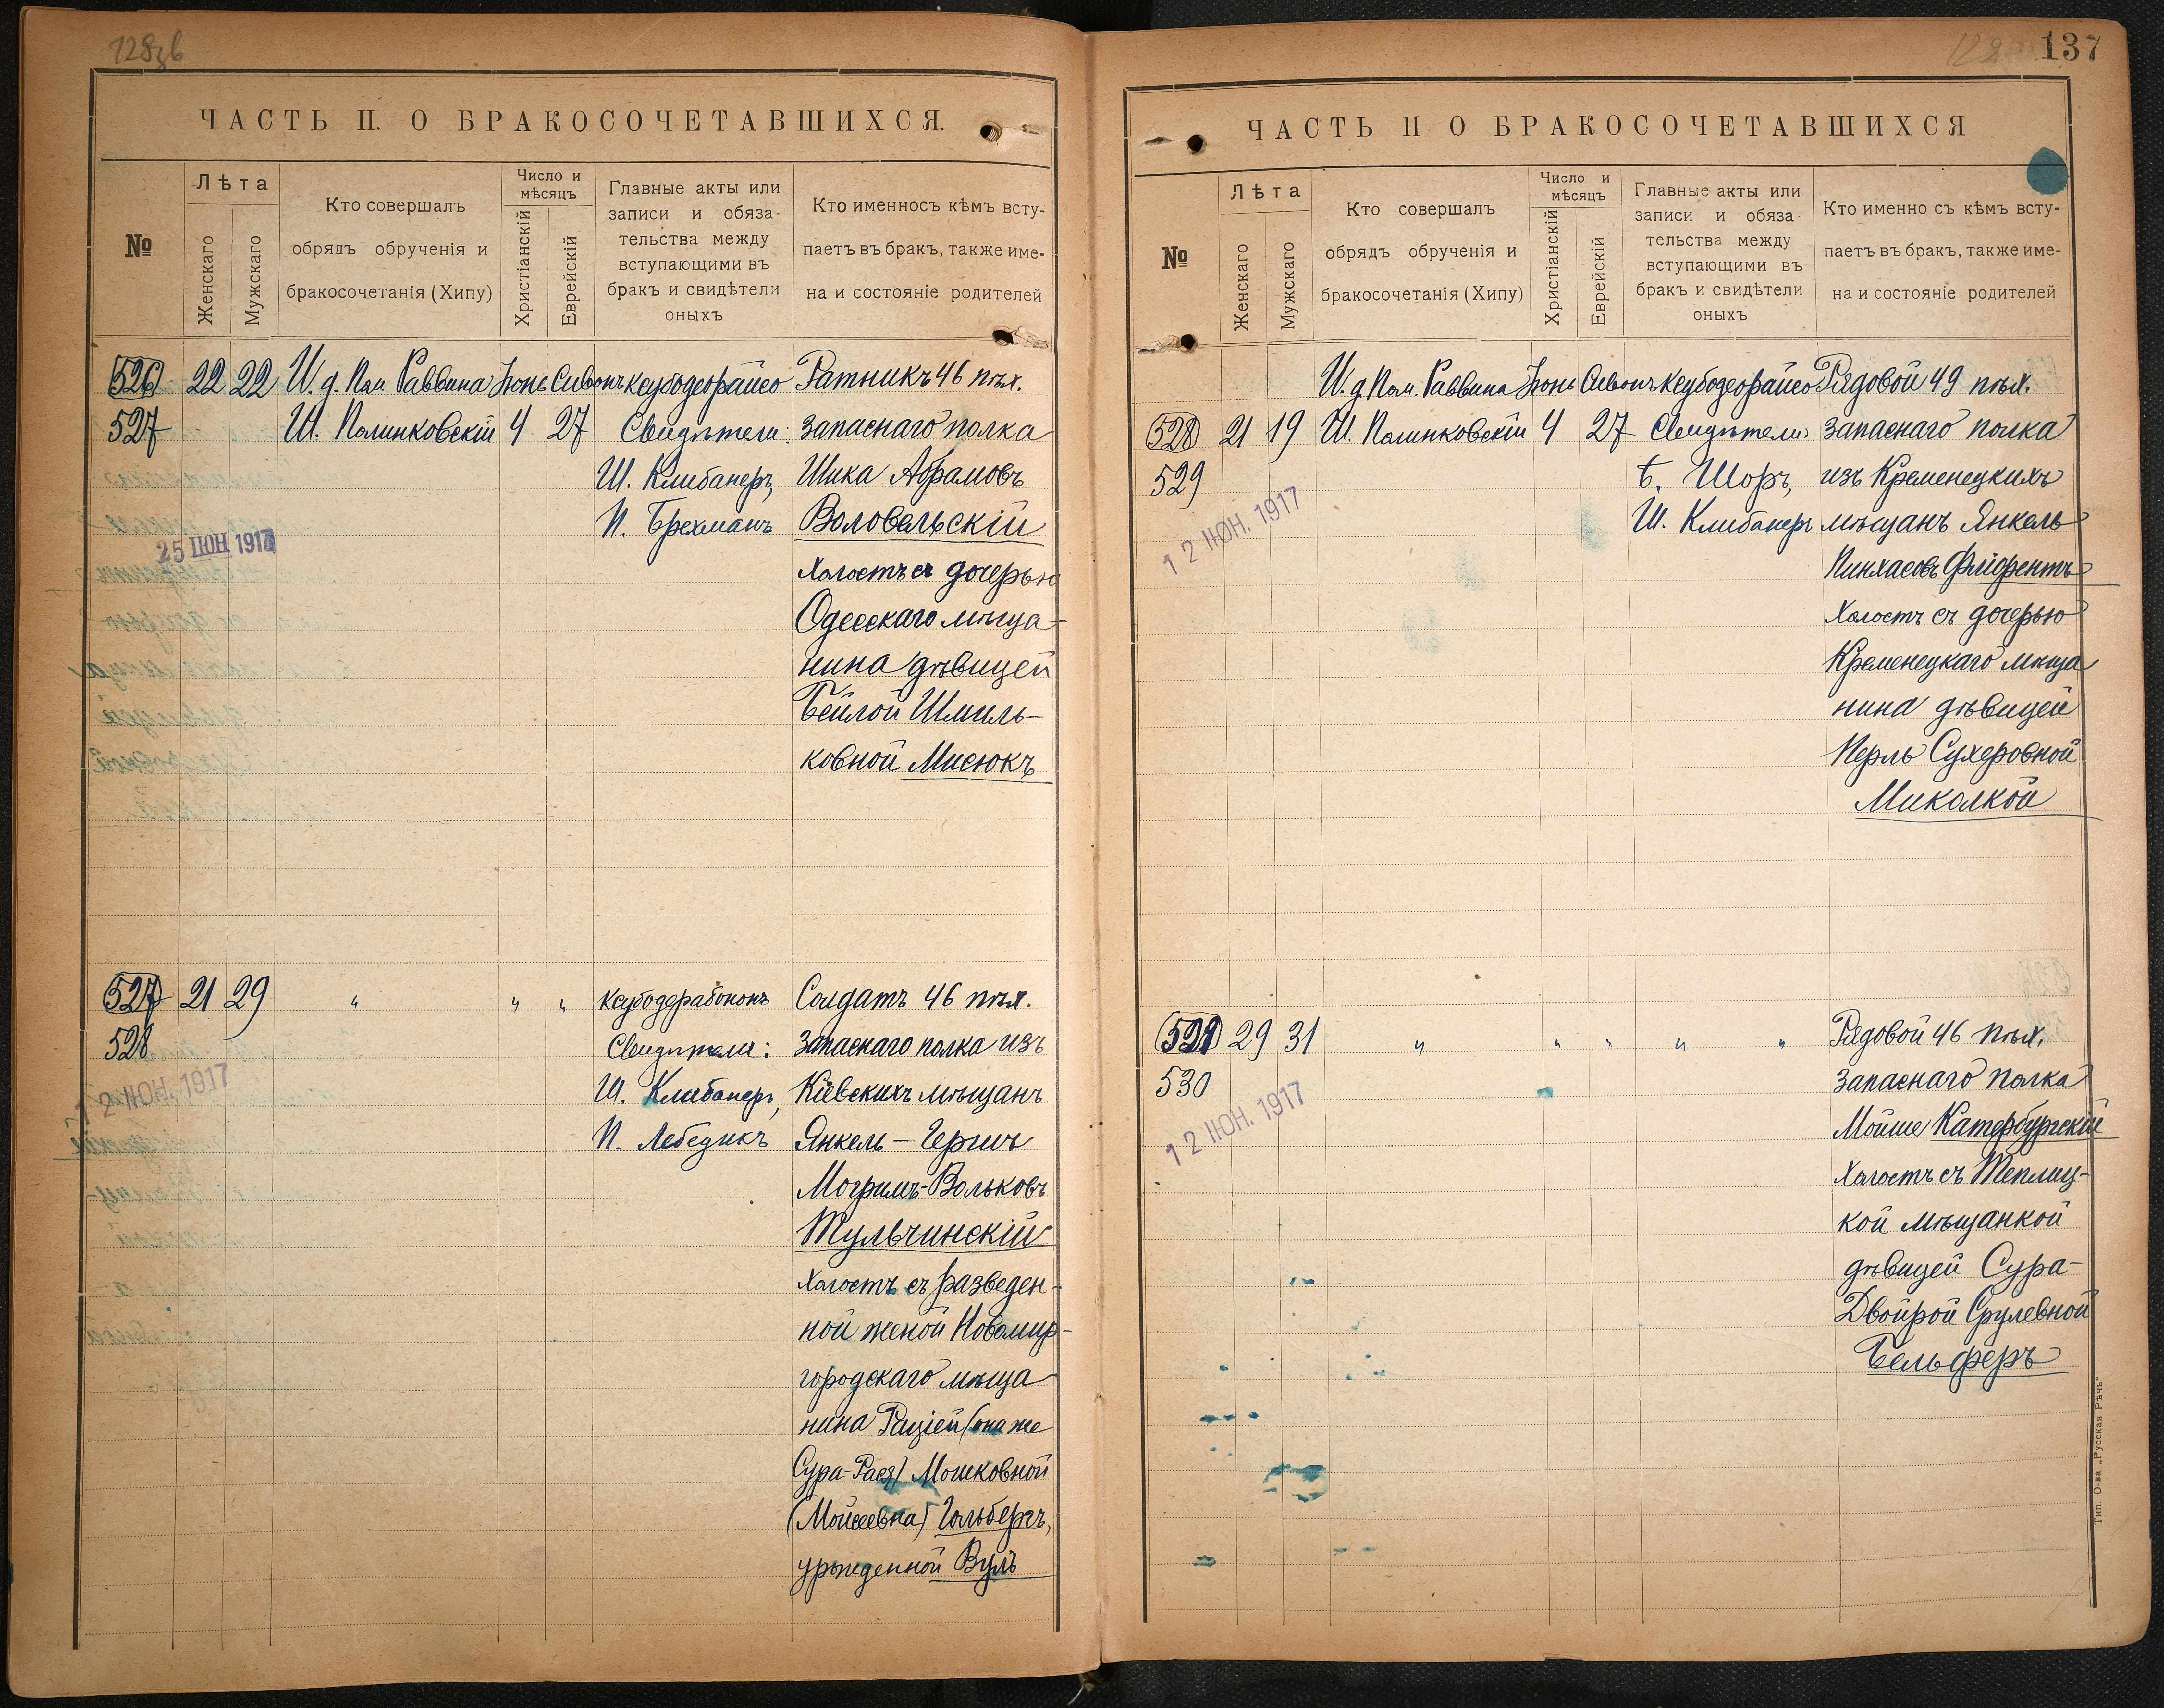 128зв
ЧАСТЬ II. О БРАКОСОЧЕТАВШИХСЯ.
№
Лѣта
Женскаго
Мужскаго
Кто совершалъ
обрядъ обрученія и
бракосочетанія (Хипу)
Число и
мѣсяцъ
Христіанскій
Еврейскій
Главные акты или
записи и обяза-
тельства между
вступающими въ
бракъ и свидѣтели
оныхъ
Кто именносъ кѣмъ всту-
паетъ въ бракъ, также име-
на и состояніе родителей
526 22 22 И. д. Пом Раввина Іюнь Сивонъ Ратникъ 46 пѣх.
527 Ш. Полинковскій 4 27 Свидѣтели: запаснаго полка
Ш. Клибанеръ, Шика Абрамовъ
П. Брехманъ Воловельскій
25 ІЮН 1917
холостъ съ дочерью
Одесскаго мѣща-
нина дѣвицей
Бейлой Шмиль-
ковной Мисюкъ
527 21 29 " " " Солдатъ 46 пѣх.
528 Свидѣтели: запаснаго полка изъ
Ш. Клибанеръ, Кіевскихъ мѣщанъ
12 ІЮН. 1917
П. Лебедикъ Янкель-Гершъ
Вольковъ
Тульчинскій
холостъ съ разведен-
ной женой Новомир-
городскаго мѣща
нина (она же
Сура-Рася) Мошковной
(Мойсеевна) Гольбергъ,
урожденной Вулъ
137
ЧАСТЬ II О БРАКОСОЧЕТАВШИХСЯ
№
Лѣта
Женскаго
Мужскаго
Кто совершалъ
обрядъ обрученія и
бракосочетанія (Хипу)
Число и
мѣсяцъ
Христіанскій
Еврейскій
Главные акты или
записи и обяза
тельства между
вступающими въ
бракъ и свидѣтели
оныхъ
Кто именно съ кѣмъ всту-
паетъ въ бракъ, также име-
на и состояніе родителей
И. д. Пом. Раввина Іюнь Сивонъ Рядовой 49 пѣх.
528 21 19 Ш. Полинковскій 4 27 Свидѣтели: запаснаго полка
529 Б. Шоръ, изъ Кременецкихъ
12 ІЮН. 1917
Ш. Клибанеръ мѣщанъ Янкель
Пинхасовъ
Холостъ съ дочерью
Кременецкаго мѣща
нина дѣвицей
Перль Сухеровной
Миколкой
529 29 31 " " " " " Рядовой 46 пѣх.
530 запаснаго полка
12 ІЮН. 1917
Мойше Катербургскій
Холостъ съ Теплиц-
кой мѣщанкой
дѣвицей Сура-
Двойрой Срулевной
Бельферъ
Тип. О-ва „Русская Рѣчь"